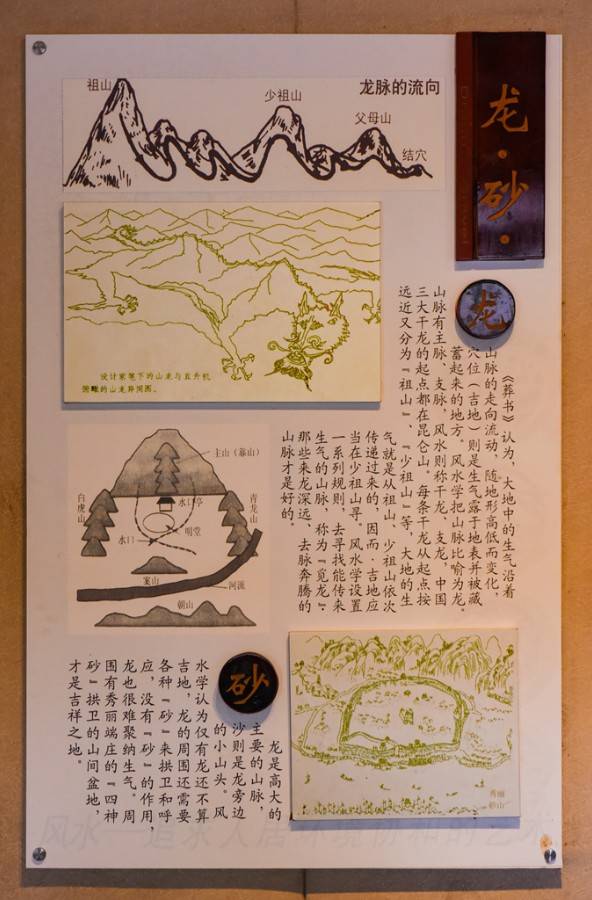 龙·砂·
龙脉的流向
祖山
少祖山
父母山
结穴
设计家笔下的山龙与直升机
俯瞰的山龙异同图。
龙
《葬书》认为，大地中的生气沿着
山脉的走向流动，随地形高低而变化，
穴位（吉地）则是生气露于地表并被藏
蓄起来的地方。风水学把山脉比喻为龙。
山脉有主脉、支脉，风水则称干龙、支龙，中国
三大干龙的起点都在昆仑山。每条干龙从起点按
远近又分为『祖山』、『少祖山』等，大地的生
气就是从祖山、少祖山依次
传递过来的，因而，吉地应
当在少祖山寻。风水学设置
一系列规则，去寻找能传来
生气的山脉，称为『觅龙』，
那些来龙深远、去脉奔腾的
山脉才是好的。
主山
白虎山
青龙山
水口亭
明堂
水口
案山
河流
朝山
砂
龙是高大的
主要的山脉，
沙则是龙旁边
的小山头。风
水学认为仅有龙还不算
吉地，龙的周围还需要
各种『砂』来拱卫和呼
应，没有『砂』的作用，
龙也很难聚纳生气。周
围有秀丽端庄的『四神
砂』拱卫的山间盆地，
才是吉祥之地。
秀丽
砂山
风水 追求人居环境协和的艺术